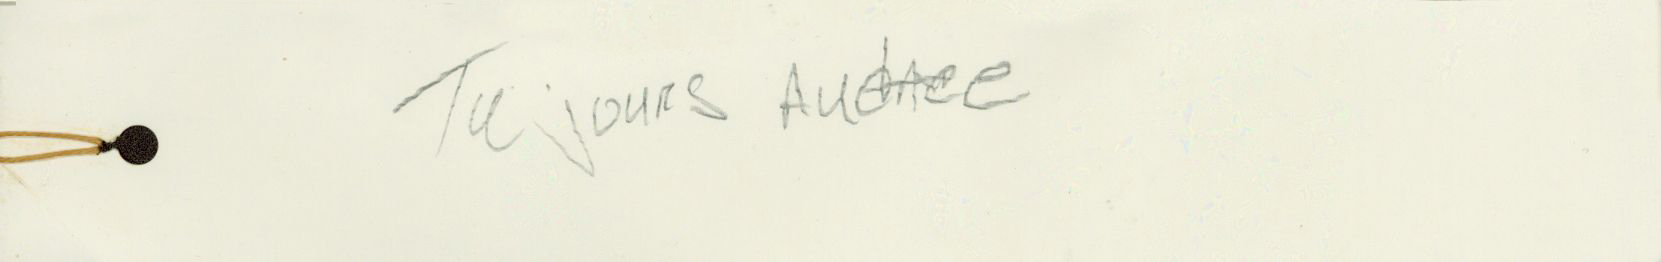 Tujours Audace